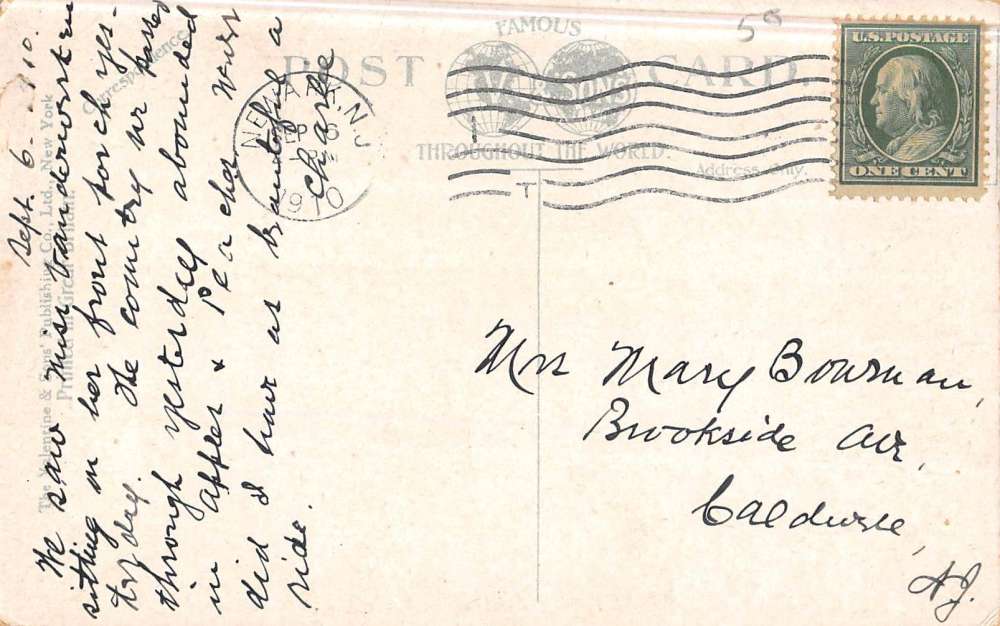 Sept. 6. 1910.
We saw Miss Vanderworstrum
sitting on her front porch yes-
terday. The country we passed
through yesterday abounded
in apples & peaches. Never
did I have as beautiful a
ride.
Charlie
Correspondence
The Valentine & Sons' Publishing Co., Ltd., New York
Printed in Great Britain.
58
FAMOUS
POST CARD.
VALENTINE & SONS
THROUGHOUT THE WORLD.
Address Only.
NEWARK, N.J.
SEP 6
1910
1
T
U.S. POSTAGE
ONE CENT
Mrs Mary Bowman,
Brookside Av,
Caldwell,
N.J.